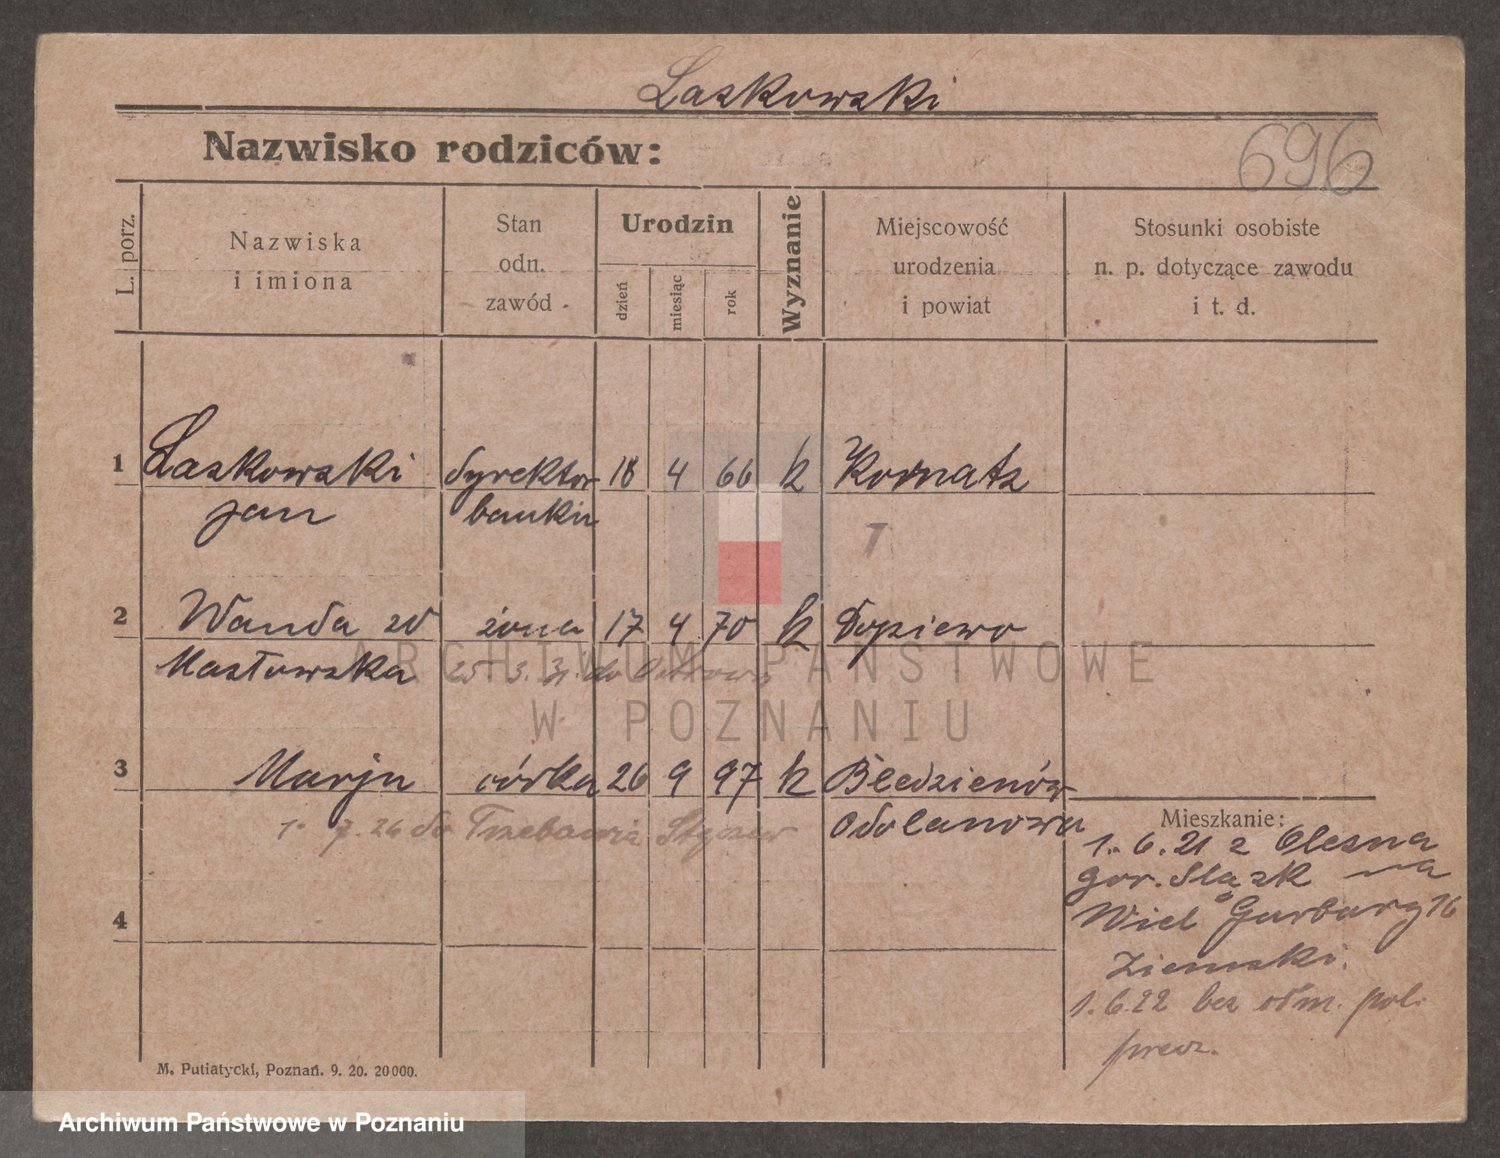 Laskowski
Nazwisko rodziców:
696
L. porz.
Nazwiska
i imiona
Stan
odn.
zawód
Urodzin
dzień
miesiąc
rok
Wyznanie
Miejscowość
urodzenia
i powiat
Stosunki osobiste
n. p. dotyczące zawodu
i t. d.
1 Laskowski dyrektor 18 4 66 k Kornatz
Jan banku
T
2 Wanda zd żona 17 4 70 k Dopiewo
Masłowska 25 3. 31. do
ARCHIWUM PAŃSTWOWE
W POZNANIU
3 Marja córka 26 9 97 k Bledzienów
1. 7. 26 do Odolanowa
Mieszkanie:
1. 6. 21 z Olesna
gór. Śląsk na
Wiel Garbary 16
Ziemski.
1. 6. 22 bez odm. pol.
4
M. Putiatycki, Poznań. 9. 20. 20000.
Archiwum Państwowe w Poznaniu